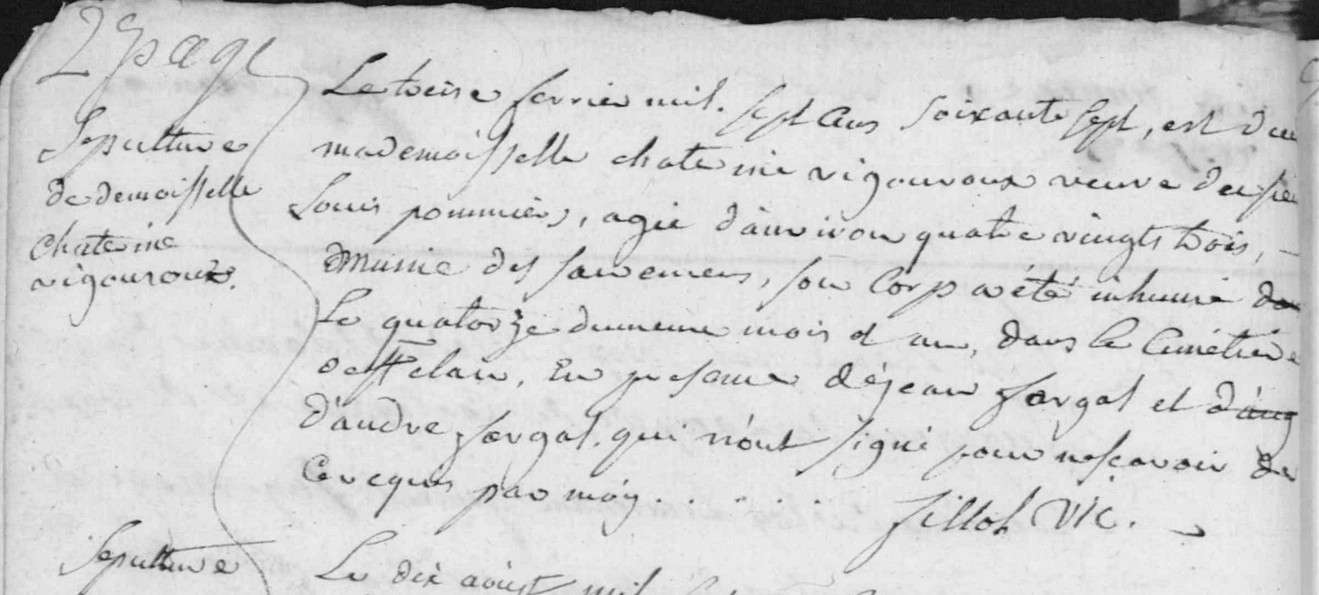 2e page
Sepulture
de demoisselle
chaterine
vigouroux.
Le treise fevrier mil. sept cens soixante sept, est dec
mademoisselle chaterine vigouroux veuve de
Louis pommiers, agée d'anviron quatre vingts trois,
munie des sacremens, son Corp a été inhumé
Le quatorze du meme mois et an, dans le Cimétiere
de St clair, En presence dejean fargal et
d'andre fargal. qui n'ont signé pour ne scavoir de
Ce requis par moy . . . . . . fillol vic.
Sepulture
Le dix aoust mil